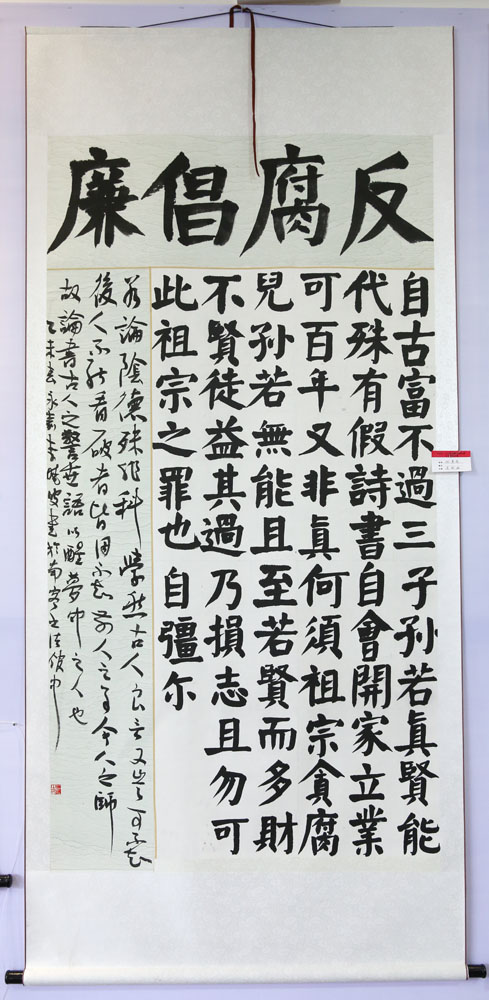 反腐倡廉
自古富不過三子孫若眞賢能
代殊有假詩書自會開家立業
可百年又非眞何須祖宗貪腐
兒孫若無能且至若賢而多財
不賢徒益其過乃損志且勿可
此祖宗之罪也自彊尔
若論陰德殊非科學然古人良言又豈可忘
後人不能看破者皆因不忘前人之事今人之師
故論書古人之警世語以醒夢中之人也
乙未